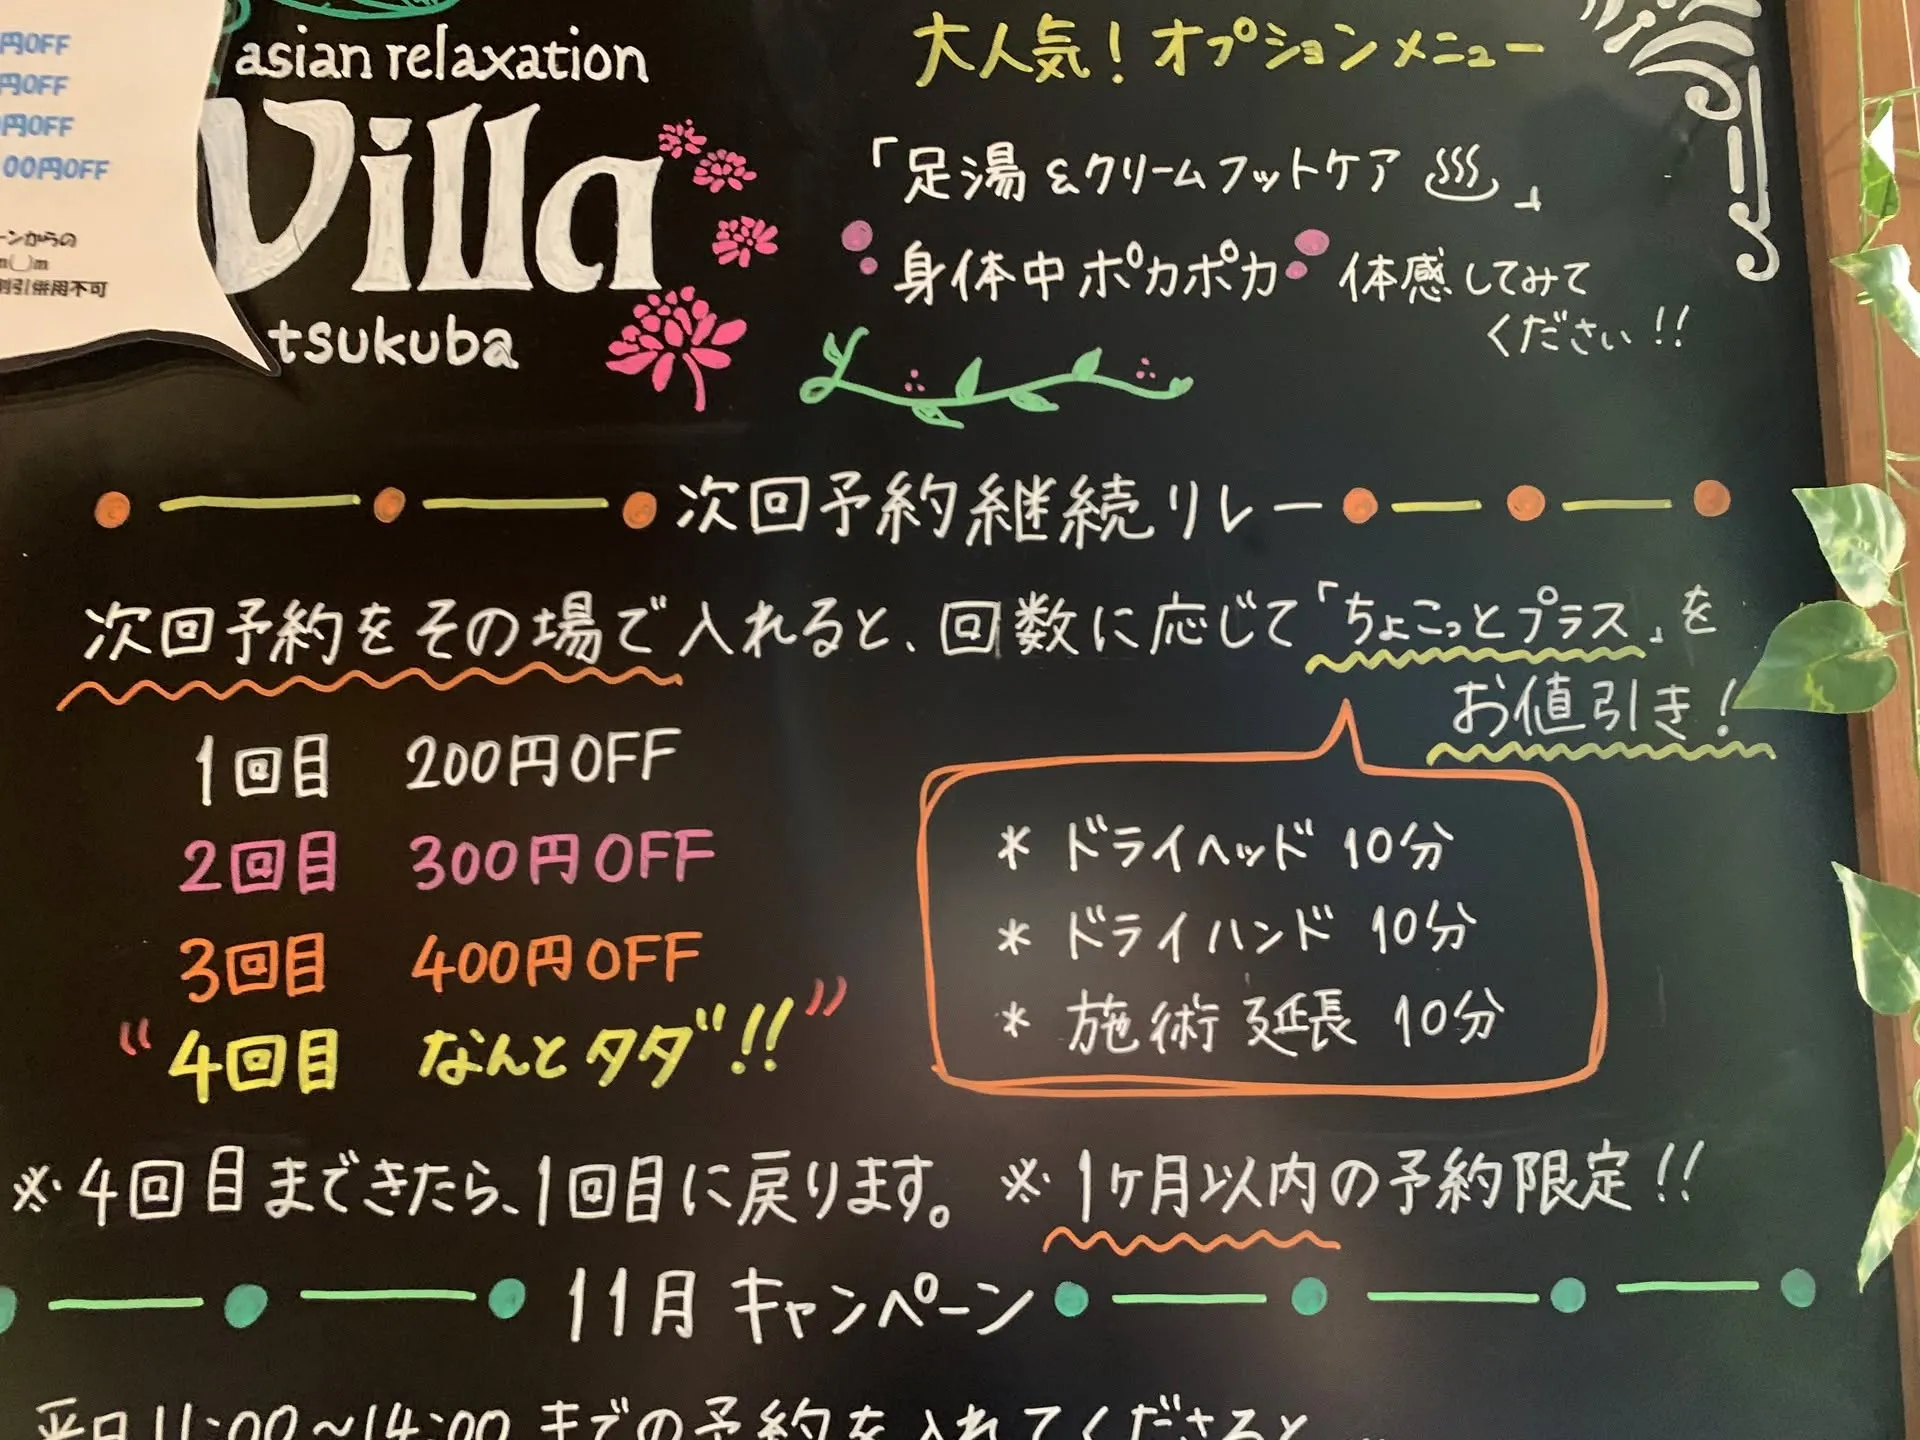 円OFF
円OFF
円OFF
00円OFF
ーンからの
m(_)m
割引併用不可
asian relaxation
Villa
tsukuba
大人気！オプションメニュー
「足湯＆クリームフットケア♨」
身体中ポカポカ 体感してみて
ください!!
次回予約継続リレー
次回予約をその場で入れると、回数に応じて「ちょこっとプラス」を
お値引き！
1回目 200円OFF
2回目 300円OFF
3回目 400円OFF
"4回目 なんとタダ!!"
* ドライヘッド 10分
* ドライハンド 10分
* 施術延長 10分
※4回目まできたら、1回目に戻ります。 ※1ヶ月以内の予約限定!!
11月キャンペーン
平日11:00～14:00までの予約を入れてくださると